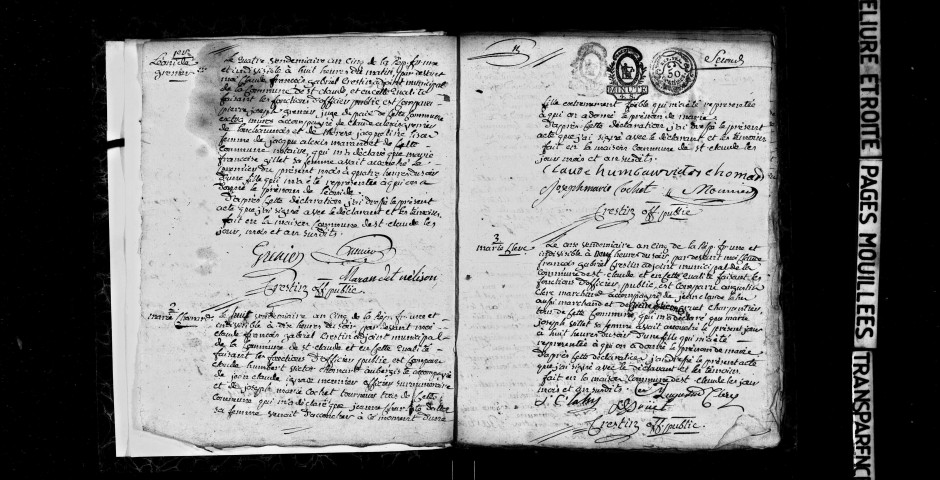 Léonide
grenier
Le quatre vendemiaire an cinq de la rép. f. une
et indivisible à huit heures du matin, par devant
moi Claude françois gabriel Crestin adjoint municipal
de la Commune de st claude, et en cette qualité
faisant les fonctions d'officier public est comparu
pierre joseph grenier, juge de paix de cette commune
extra muros accompagné de claude alexis grenier
et de thérese jacqueline
femme de jacque alexis marandet de cette
Commune notaire, qui m'a déclaré que marie
françoise gillet sa femme avait accouché le
premier du present mois à quatre heures du soir
d'une fille qui m'a été representée à qui on a
donné le prénom de Léonide
D'après cette déclaration j'ai dressé le présent
acte que j'ai signé avec le déclarant et les témoins.
fait en la maison commune de st claude les
jour, mois et an susdits.
Grenier Grenier
Marandet
Crestin off. public
2
marie Chomard
Le huit vendemiaire an cinq de la Rép. fr. une et
indivisible à dix heures du soir par devant moi
claude françois gabriel Crestin adjoint municipal
de la Commune de st claude et en cette qualité
faisant les fonctions d'officier public est comparu
claude humbert victor chomard aubergiste accompagné
de jean claude monnier officier surnumeraire
et de joseph marie Cochet tourneur tous de cette
Commune qui m'a déclaré que jeanne
sa femme venait d'accoucher à ce moment d'une
II
MINUTE
50
Second
fille entierement foible qui m'a été representée
à qui on a donné le prénom de marie
D'après cette déclaration j'ai dressé le présent
acte que j'ai signé avec le déclarant et les témoins
fait en la maison Commune de st claude les
jour mois et an susdits.
Claude humber victor chomard
Joseph marie Cochet Monnier
Crestin off public
3
marie Clerc
Le onze vendemiaire an cinq de la Rép. fr. une et
indivisible à heures du soir, par devant moi claude
françois gabriel Crestin adjoint municipal de la
Commune de st claude, et en cette qualité faisant les
fonctions d'officier public, est comparu augustin
Clerc marchand accompagné de jean claude
aussi marchand et de charpentier,
tous de cette Commune, qui m'a déclaré que marie
joseph sa femme avait accouché le présent jour
à huit heures du soir d'une fille qui m'a été
representée à qui on a donné le prénom de marie
D'après cette déclaration j'ai dressé le présent acte
que j'ai signé avec le déclarant et les témoins
fait en la maison Commune de st claude les jour
mois et an susdits.
Augustin Clerc
Crestin off. public.
RELIURE ETROITE
PAGES MOUILLEES
TRANSPARENCE